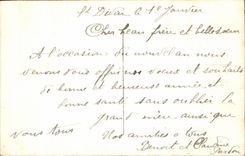 St Dizier le 1er Janvier
Cher beau frère et belle sœur
A l'occasion du nouvel an nous
venons vous offrir nos vœux et souhaits
de bonne et heureuse année et
bonne santé sans oublier la
grand mère ainsi que
vous tous Nos amitiés a tous
Benoit et